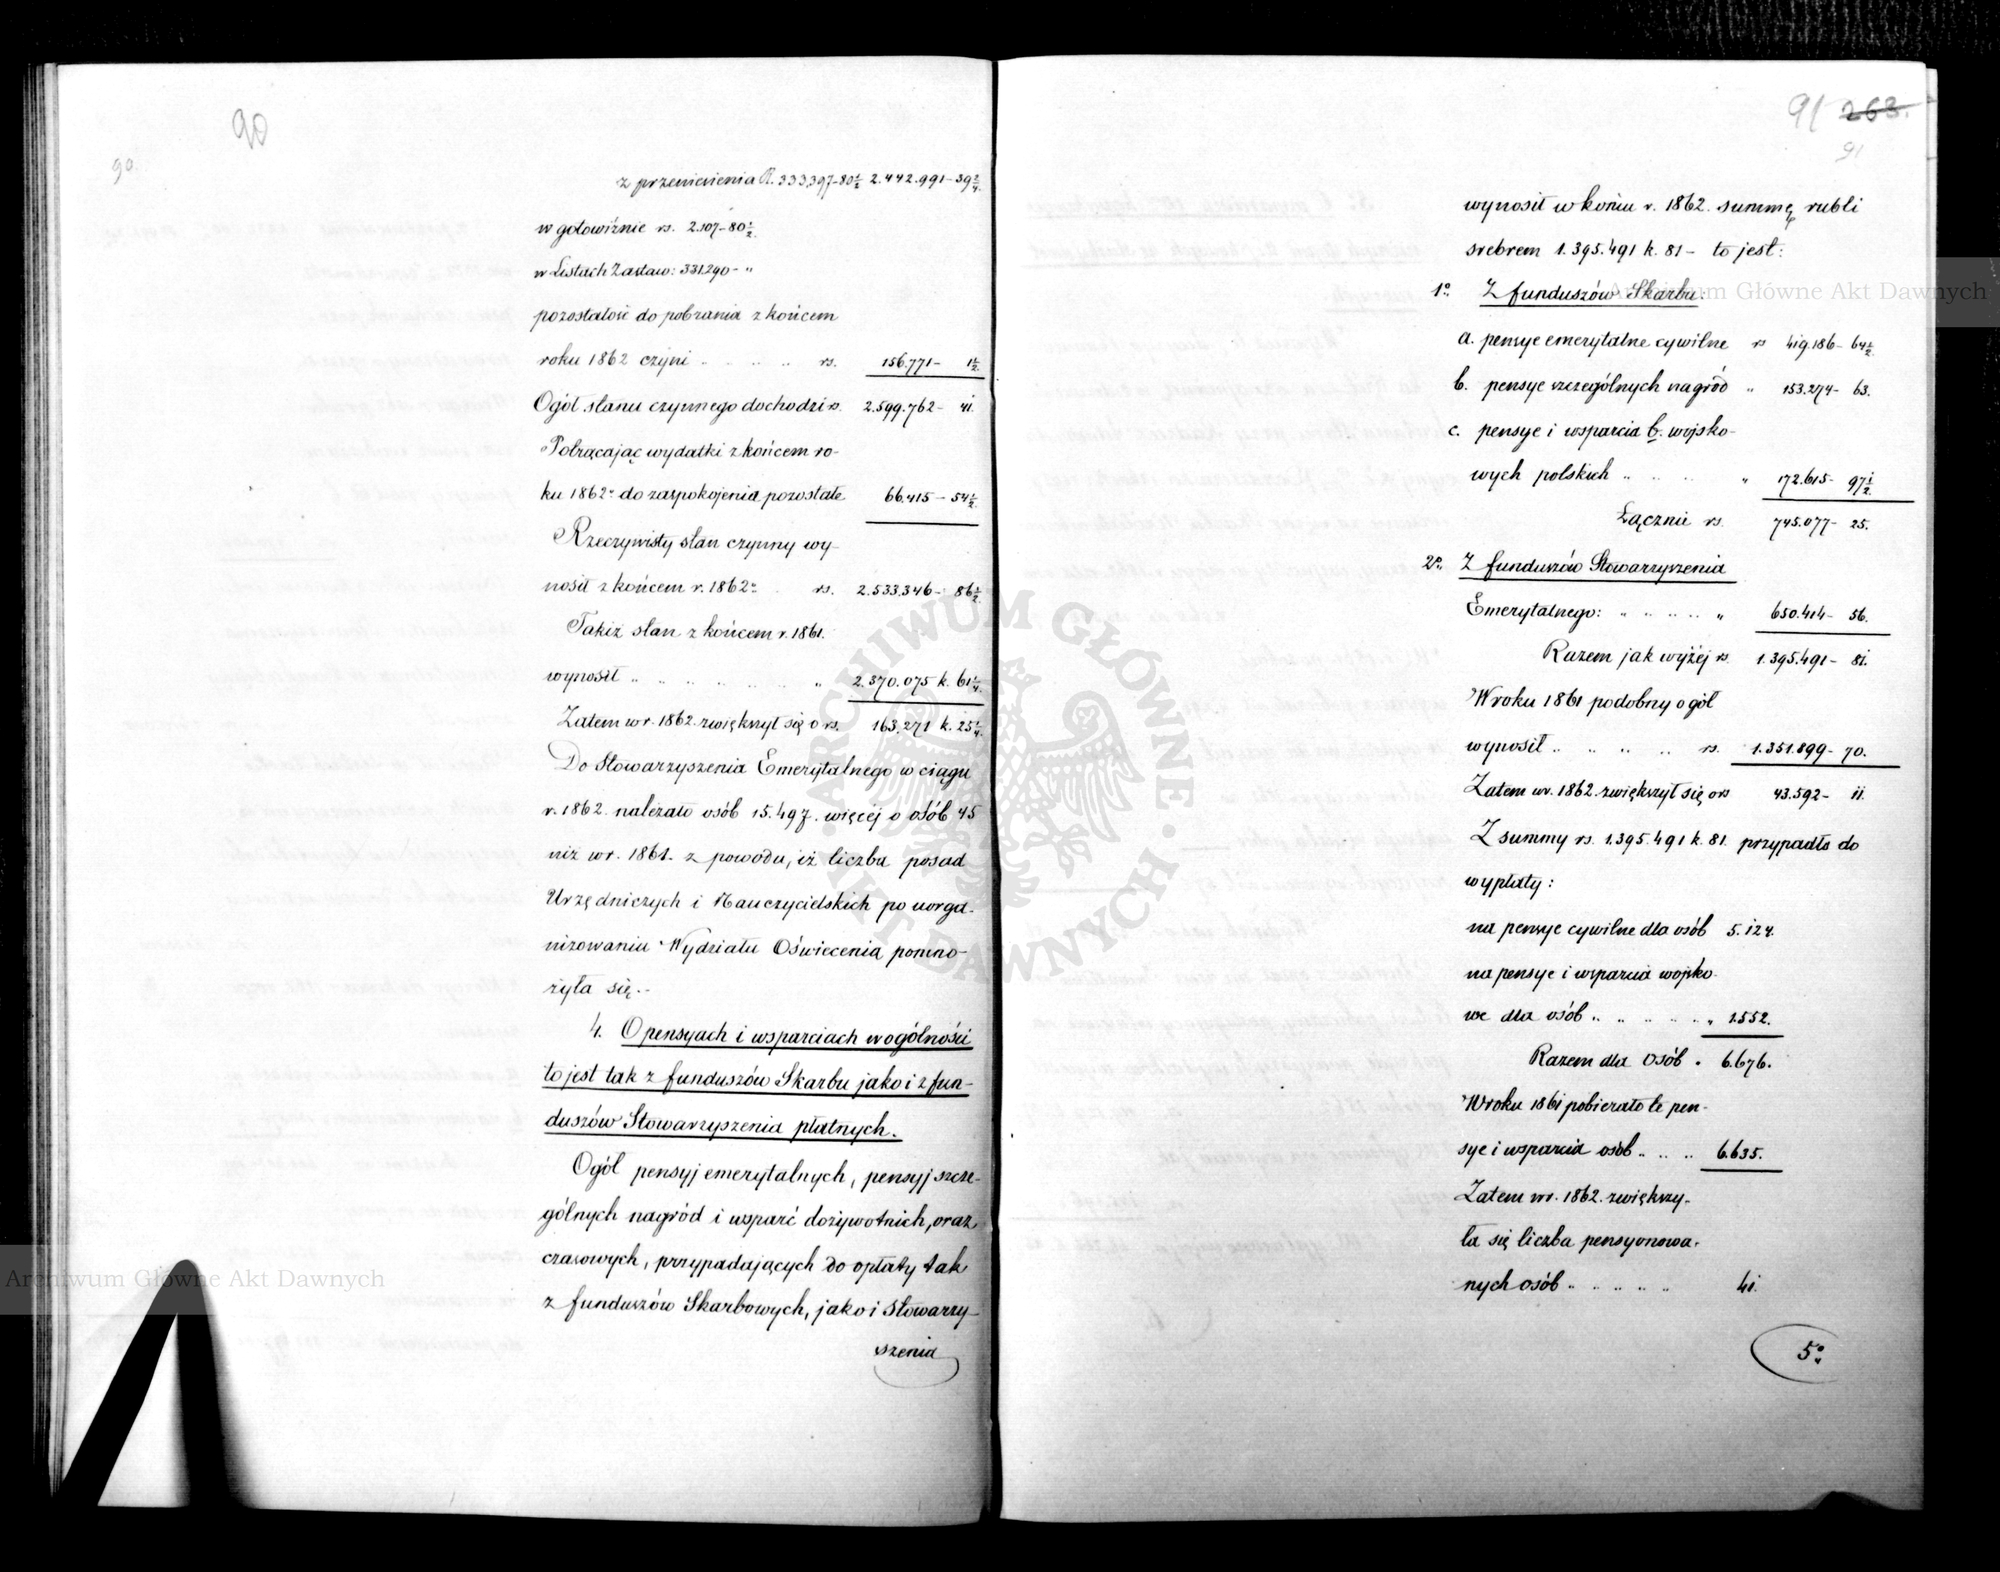 90
90.
z przeniesienia R. 333.397-80½ 2.442.991-39¾.
w gotowiźnie rs. 2.107-80½.
w Listach Zastaw: 331.290- "
pozostałość do pobrania z końcem
roku 1862 czyni .. .. .. .. rs. 156.771- 1½.
Ogół stanu czynnego dochodzi rs. 2.599.762- 41.
Potrącając wydatki z końcem ro-
ku 1862. do zaspokojenia pozostałe 66.415-54½.
Rzeczywisty stan czynny wy-
nosił z końcem r. 1862. .. rs. 2.533.346- 86½.
Takiż stan z końcem r. 1861.
wynosił .. .. .. .. .. " 2.370.075 k. 61¼.
Zatem w r. 1862. zwiększył się o rs. 163.271 k. 25¼.
Do Stowarzyszenia Emerytalnego w ciągu
r. 1862. należało osób 15.497. więcej o osób 45
niż w r. 1861. z powodu, iż liczba posad
Urzędniczych i Nauczycielskich po uorga-
nizowaniu Wydziału Oświecenia pomno-
żyła się.-
4. O pensyach i wsparciach w ogólności
to jest tak z funduszów Skarbu jako i z fun-
duszów Stowarzyszenia płatnych.
Ogół pensyj emerytalnych, pensyj szcze-
gólnych nagród i wsparć dożywotnich, oraz
czasowych, przypadających do opłaty tak
z funduszów Skarbowych, jako i Stowarzy-
szenia
91 263.
91
wynosił w końcu r. 1862. summę rubli
srebrem 1.395.491 k. 81- to jest:
1° Z funduszów Skarbu:
a. pensye emerytalne cywilne rs 419.186- 64½.
b. pensye szczególnych nagród " 153.274- 63.
c. pensye i wsparcia b. wojsko-
wych polskich .. .. .. " 172.615- 97½.
Łącznie rs. 745.077- 25.
2° Z funduszów Stowarzyszenia
Emerytalnego: .. .. .. .. " 650.414- 56.
Razem jak wyżej rs. 1.395.491- 81.
W roku 1861 podobny ogół
wynosił .. .. .. .. rs. 1.351.899- 70.
Zatem w r. 1862. zwiększył się o rs 43.592- 11.
Z summy rs. 1.395.491 k. 81. przypadło do
wypłaty:
na pensye cywilne dla osób 5.124.
na pensye i wsparcia wojsko-
we dla osób .. .. .. .. .. " 1.552.
Razem dla osób . 6.676.
W roku 1861 pobierało te pen-
sye i wsparcia osób .. .. .. 6.635.
Zatem w r. 1862. zwiększy-
ła się liczba pensyonowa-
nych osób .. .. .. .. .. 41.
5°
Archiwum Główne Akt Dawnych
Archiwum Główne Akt Dawnych
ARCHIWUM GŁÓWNE AKT DAWNYCH